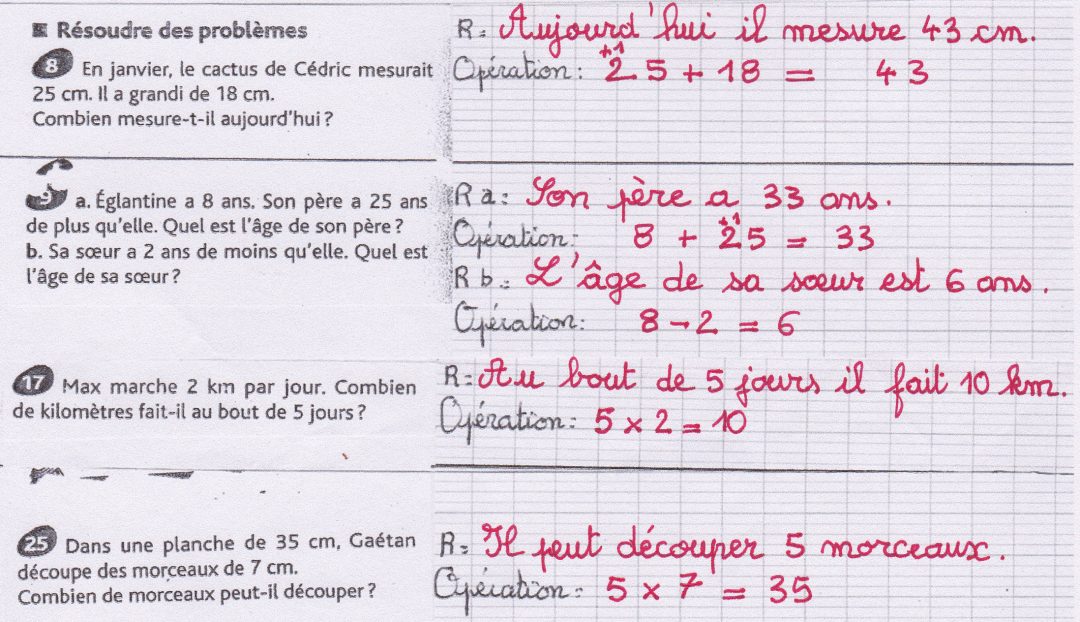 Résoudre des problèmes
8 En janvier, le cactus de Cédric mesurait
25 cm. Il a grandi de 18 cm.
Combien mesure-t-il aujourd'hui ?
R: Aujourd'hui il mesure 43 cm.
+1
Opération: 25 + 18 = 43
9 a. Églantine a 8 ans. Son père a 25 ans
de plus qu'elle. Quel est l'âge de son père ?
b. Sa sœur a 2 ans de moins qu'elle. Quel est
l'âge de sa sœur ?
R a: Son père a 33 ans.
+1
Opération: 8 + 25 = 33
R b: L'âge de sa sœur est 6 ans.
Opération: 8 - 2 = 6
17 Max marche 2 km par jour. Combien
de kilomètres fait-il au bout de 5 jours ?
R: Au bout de 5 jours il fait 10 km.
Opération: 5 x 2 = 10
25 Dans une planche de 35 cm, Gaétan
découpe des morceaux de 7 cm.
Combien de morceaux peut-il découper ?
R: Il peut découper 5 morceaux.
Opération: 5 x 7 = 35